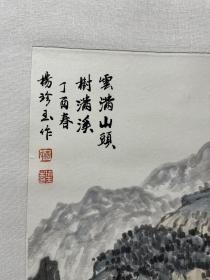 雲満山頭
樹满溪
丁酉春
楊珍玉作